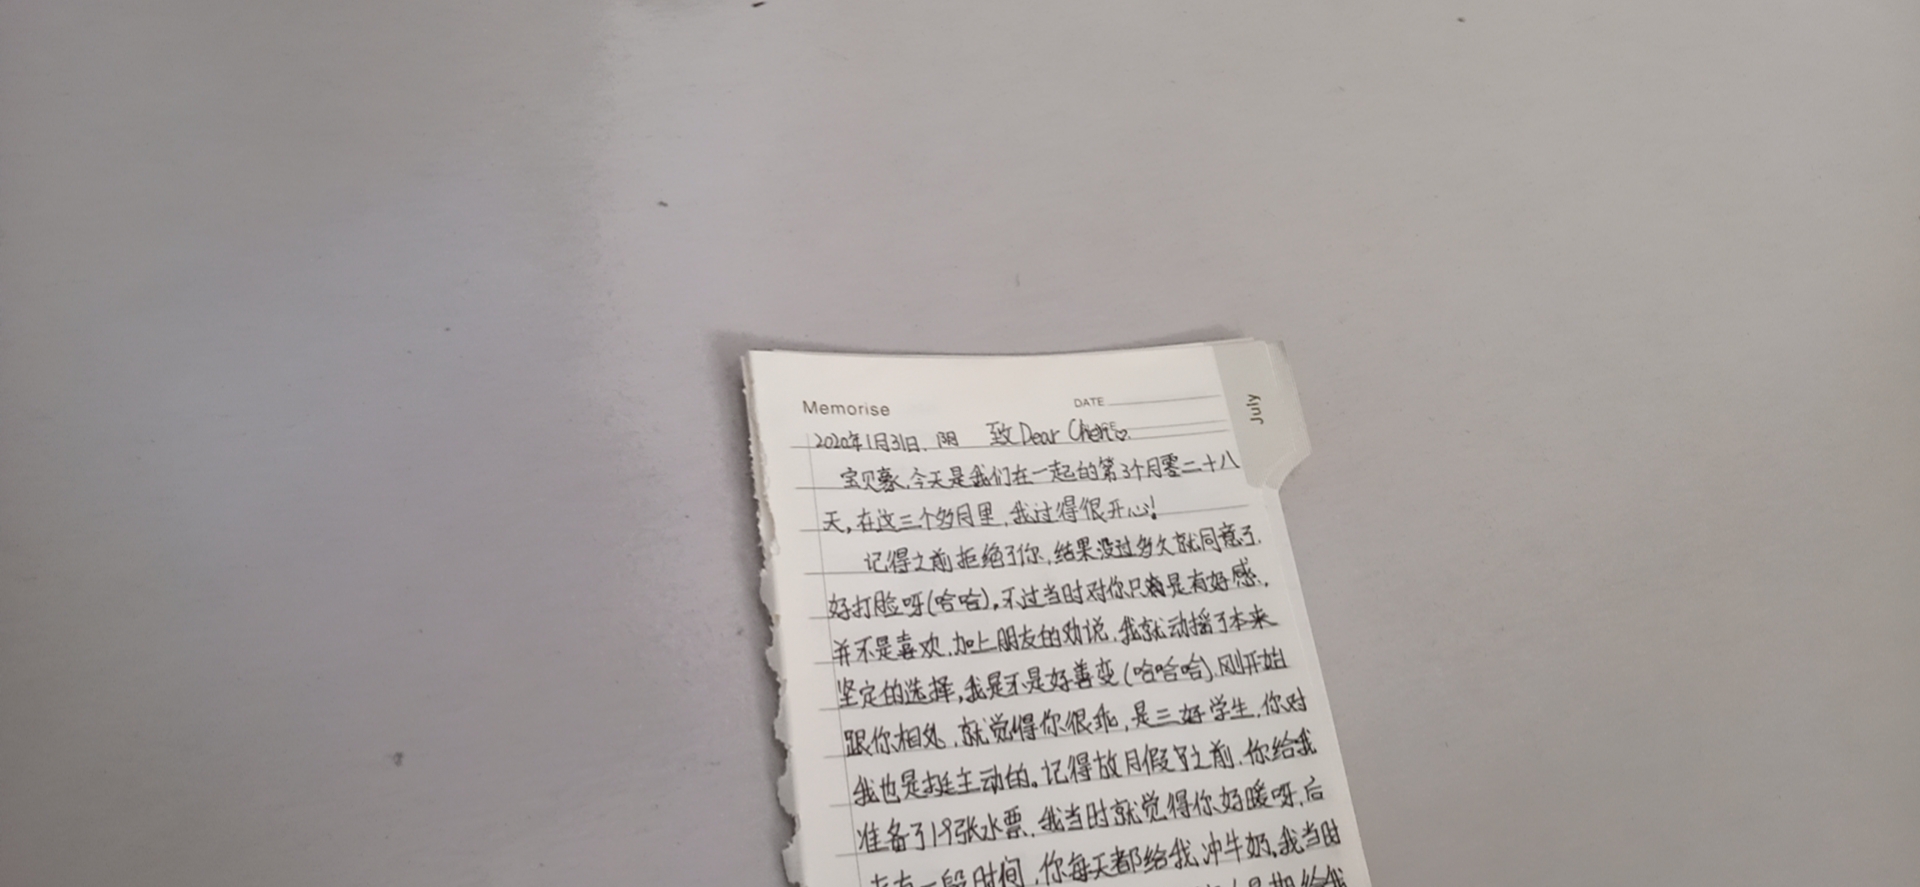 Memorise
DATE
July
2020年1月31日. 阴 致Dear Chen♡.
宝贝豪,今天是我们在一起的第3个月零二十八
天,在这三个多月里,我过得很开心!
记得之前拒绝了你,结果没过多久就同意了.
好打脸呀(哈哈),不过当时对你只是有好感,
并不是喜欢,加上朋友的劝说,我就动摇了本来
坚定的选择,我是不是好善变(哈哈哈).刚开始
跟你相处,就觉得你很乖,是三好学生,你对
我也是挺主动的。记得放月假之前,你给我
准备了19张水票,我当时就觉得你好暖呀,后
来有一段时间,你每天都给我冲牛奶,我当时